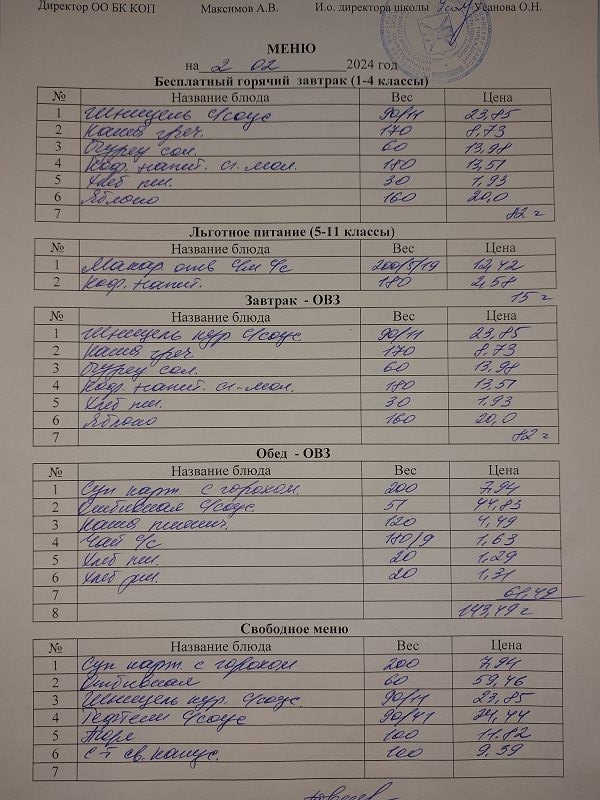 Директор ОО БК КОП Максимов А.В. И.о. директора школы Усанова О.Н.
МЕНЮ
на 2 02 2024 год
Бесплатный горячий завтрак (1-4 классы)
№ Название блюда Вес Цена
1 Шницель с/соус 90/11 23,85
2 Каша греч. 170 8,73
3 Огурец сол. 60 13,98
4 Коф. напит. сг. мол. 180 13,51
5 Хлеб пш. 30 1,93
6 Яблоко 160 20,0
7 82 г
Льготное питание (5-11 классы)
№ Название блюда Вес Цена
1 Макар. отв с/м с/с 200/5/19 12,42
2 Коф. напит. 180 2,58
15 г
Завтрак - ОВЗ
№ Название блюда Вес Цена
1 Шницель кур с/соус 90/11 23,85
2 Каша греч. 170 8,73
3 Огурец сол. 60 13,98
4 Коф. напит. сг-мол. 180 13,51
5 Хлеб пш. 30 1,93
6 Яблоко 160 20,0
7 82 г
Обед - ОВЗ
№ Название блюда Вес Цена
1 Суп карт. с горохом. 200 7,94
2 Отбивная с/соус. 51 44,83
3 Каша пшенич. 120 4,49
4 Чай с/с 180/9 1,63
5 Хлеб пш. 20 1,29
6 Хлеб рж. 20 1,31
7 61,49
8 143,49 г
Свободное меню
№ Название блюда Вес Цена
1 Суп карт. с горохом 200 7,94
2 Отбивная 60 59,46
3 Шницель кур. с/соус. 90/11 23,85
4 Тефтели с/соус 90/41 24,44
5 Пюре 100 11.82
6 с-т св. капус. 100 9,59
7